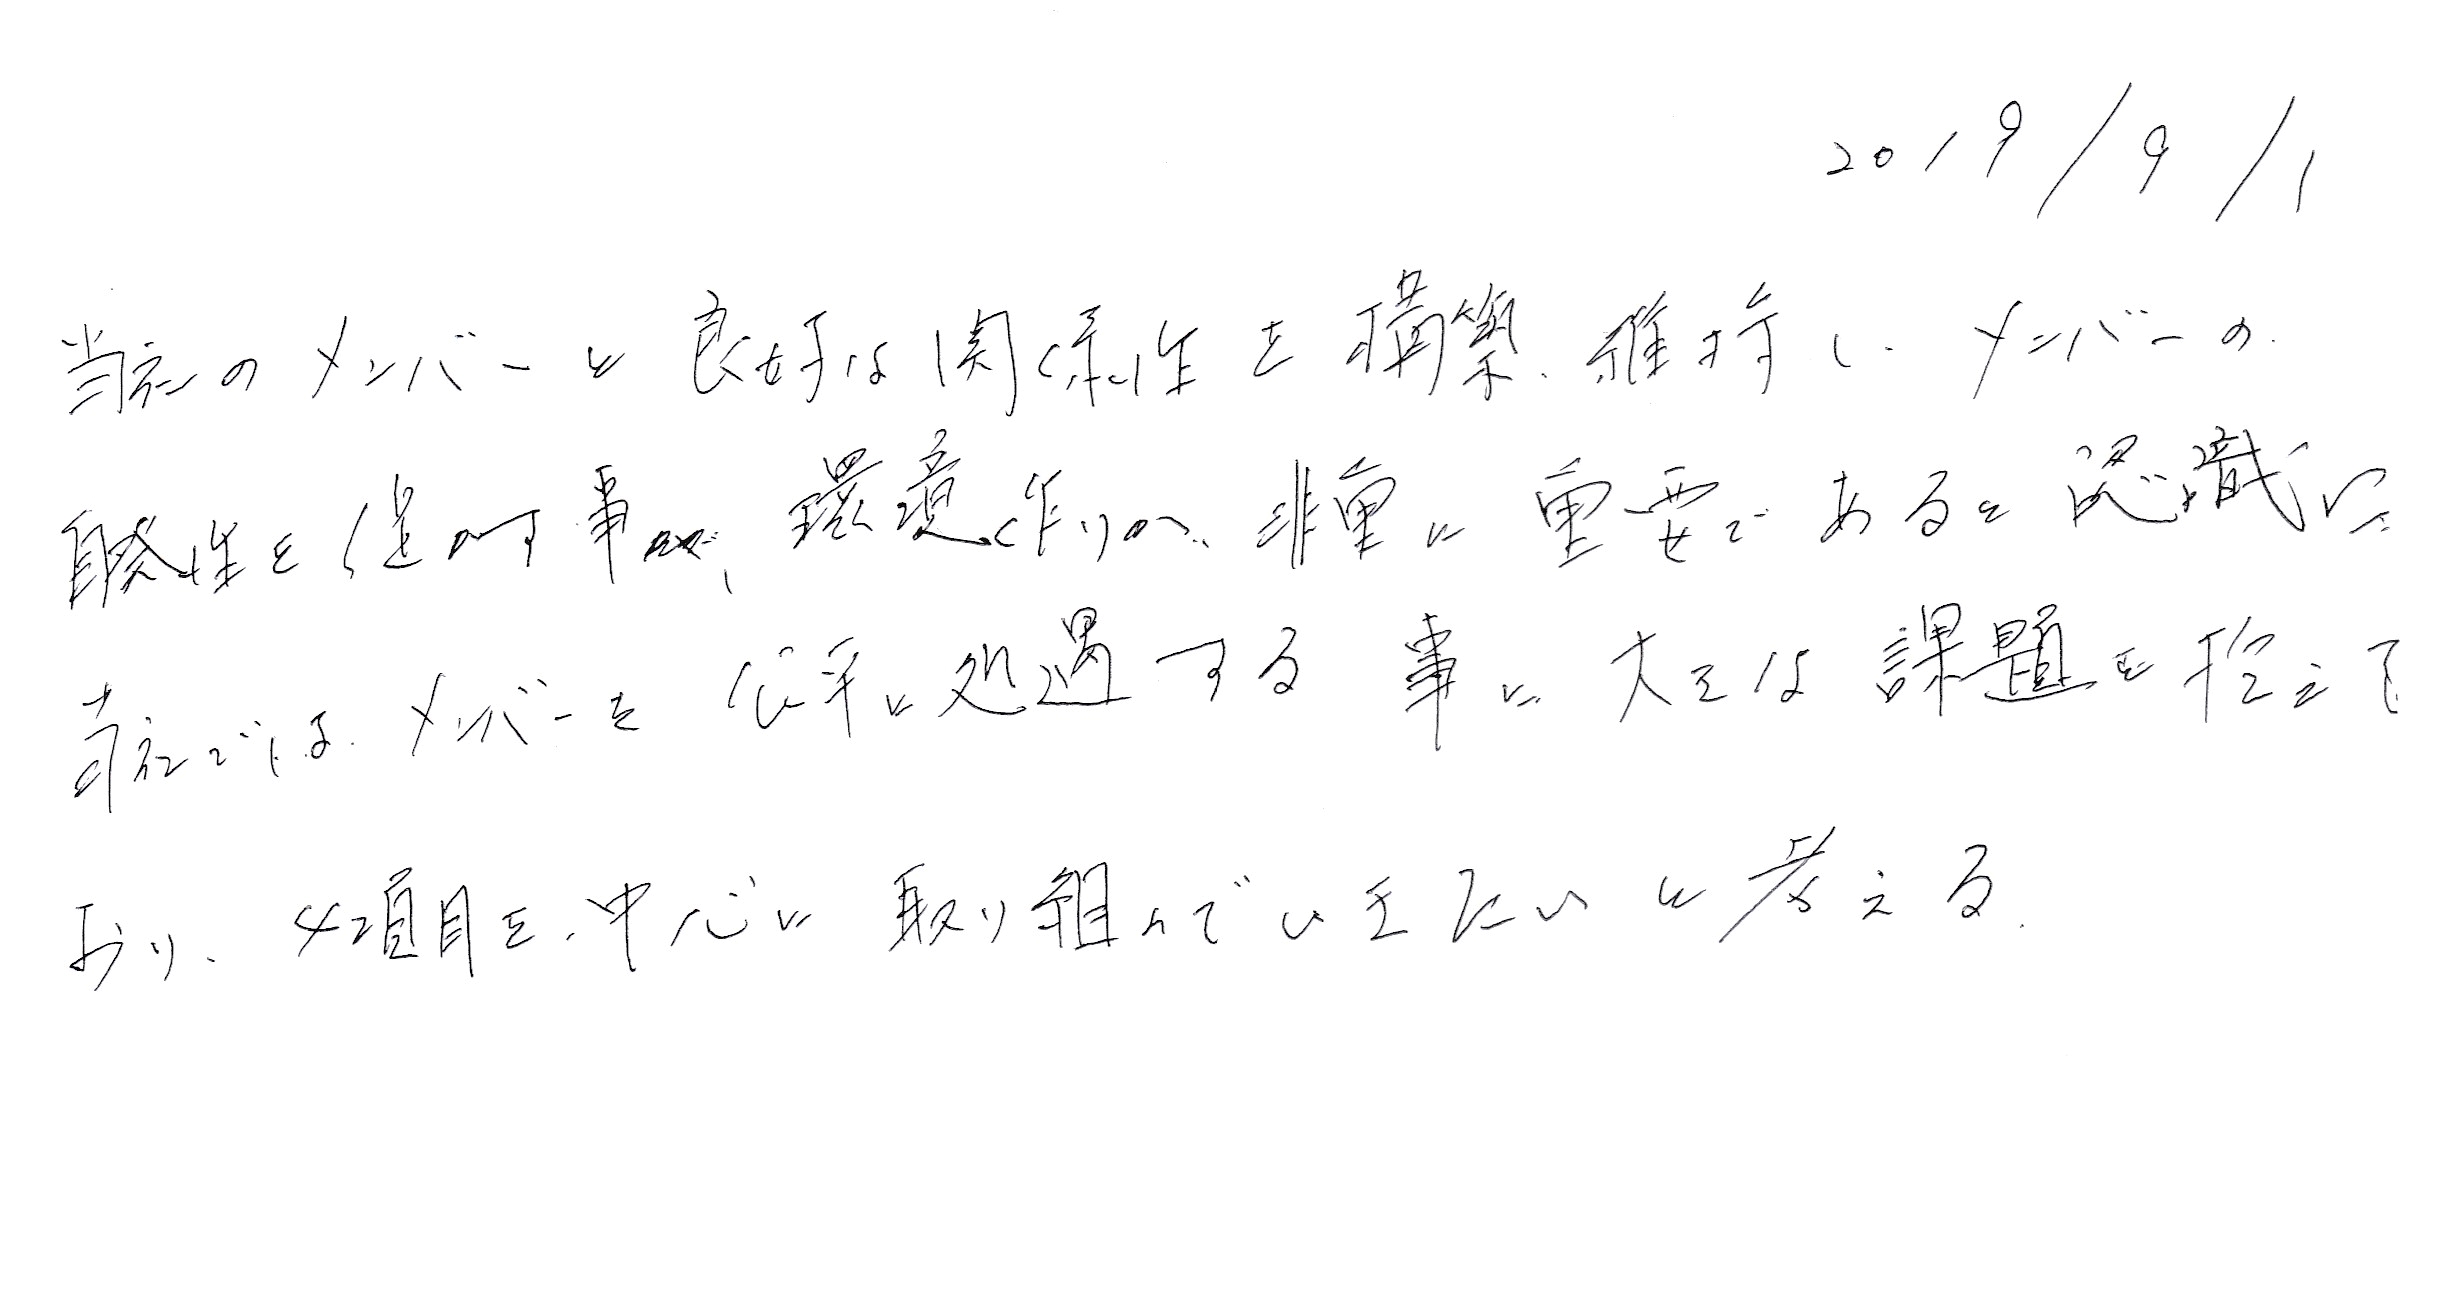 2019/9/1
当社のメンバーと良好な関係性を構築、維持し、メンバーの
自発性を促す事が、環境作りが、非常に重要であると認識した
当社では、メンバーを公平に処遇する事に大きな課題を抱えて
おり、4項目を、中心に取り組んでいきたいと考える。